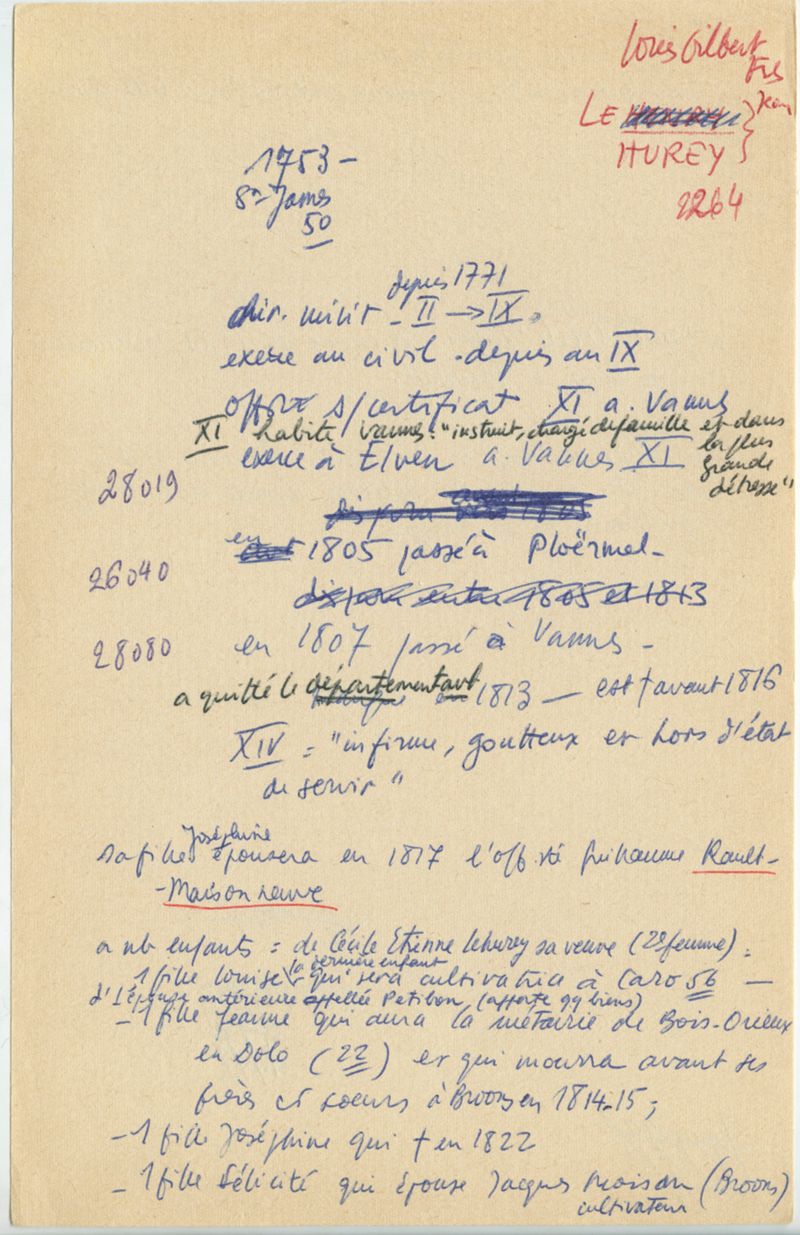 Louis Gilbert
Fçs
Jean
LE
HUREY
2264
1753 -
St-James
50
depuis 1771
chir. milit - II → IX.
exerce au civil - depuis an IX
off. s/certificat XI a. Vannes
XI habite Vannes: "instruit, chargé de famille et dans
la plus
grande
détresse"
exerce à Elven a. Vannes XI
28019
en 1805 passé à Ploërmel -
26040
28080
en 1807 passé à Vannes -
a quitté le département avt 1813 - est † avant 1816
XIV = "infirme, goutteux et hors d'état
de servir"
Joséphine
sa fille épousera en 1817 l'off. sté Guillaume Rault-
-Maisonneuve
a nb enfants = de Cécile Etienne Lehurey sa veuve (2e femme) :
la dernière enfant
1 fille Louise qui sera cultivatrice à Caro 56 -
d'1 épouse antérieure appelée Petibon (apporte qq biens)
- 1 fille Jeanne qui aura la métairie de Bois-Orieux
en Dolo (22) et qui mourra avant ses
frères et soeurs à Broons en 1814-15 ;
- 1 fille Joséphine qui † en 1822
- 1 fille Félicité qui épouse Jacques Moisan (Broons)
cultivateur